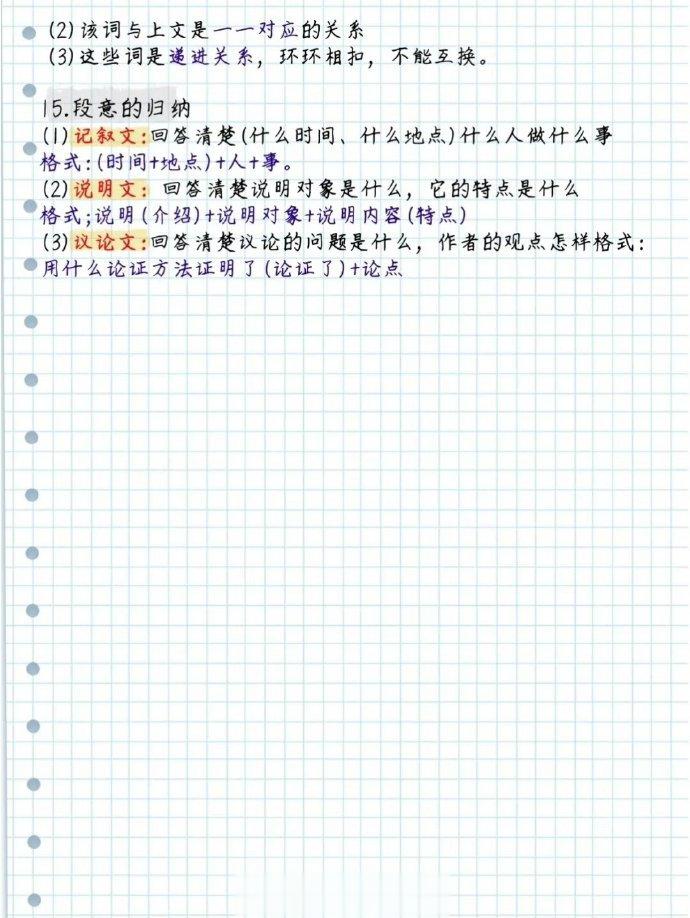 (2)该词与上文是一一对应的关系
(3)这些词是递进关系，环环相扣，不能互换。
15.段意的归纳
(1)记叙文:回答清楚(什么时间、什么地点)什么人做什么事
格式:(时间+地点)+人+事。
(2)说明文: 回答清楚说明对象是什么，它的特点是什么
格式;说明(介绍)+说明对象+说明内容(特点)
(3)议论文:回答清楚议论的问题是什么，作者的观点怎样格式:
用什么论证方法证明了(论证了)+论点